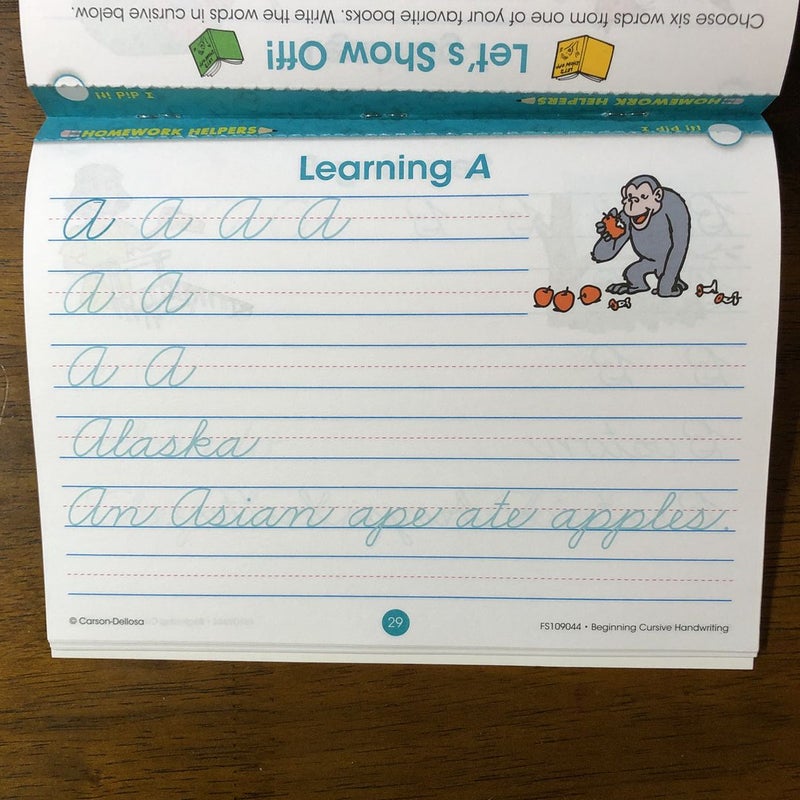 Choose six words from one of your favorite books. Write the words in cursive below.
Let's Show Off!
HOMEWORK HELPERS
I did it!
HOMEWORK HELPERS
I did it!
Learning A
A A A A
A A
A A
Alaska
An Asian ape ate apples.
© Carson-Dellosa
29
FS109044 • Beginning Cursive Handwriting